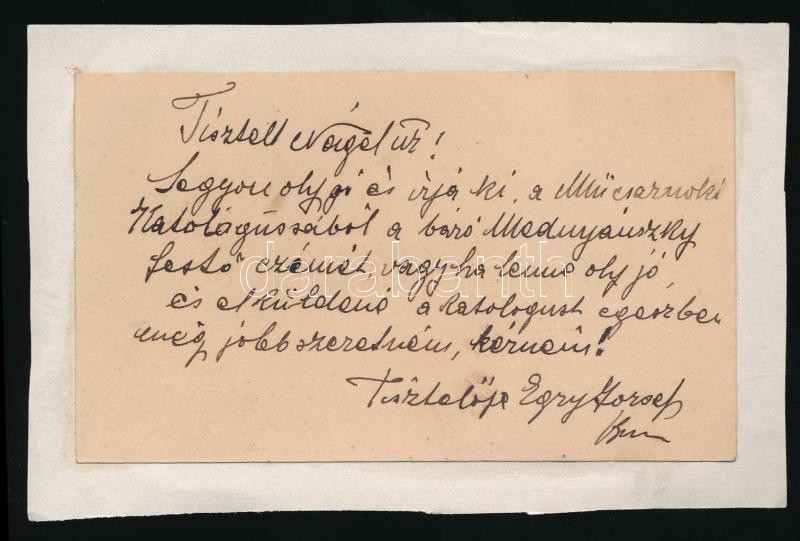 Tisztelt Nágel úr!
Legyen oly jó és irja ki, a Műcsarnoki
Katologussából a báró Mednyánszky
festő czémét, vagy ha lenne oly jó
és elküldené a katologust egeszben
még jobb szeretném, kérném!
Tisztelője Egry József
darabanth